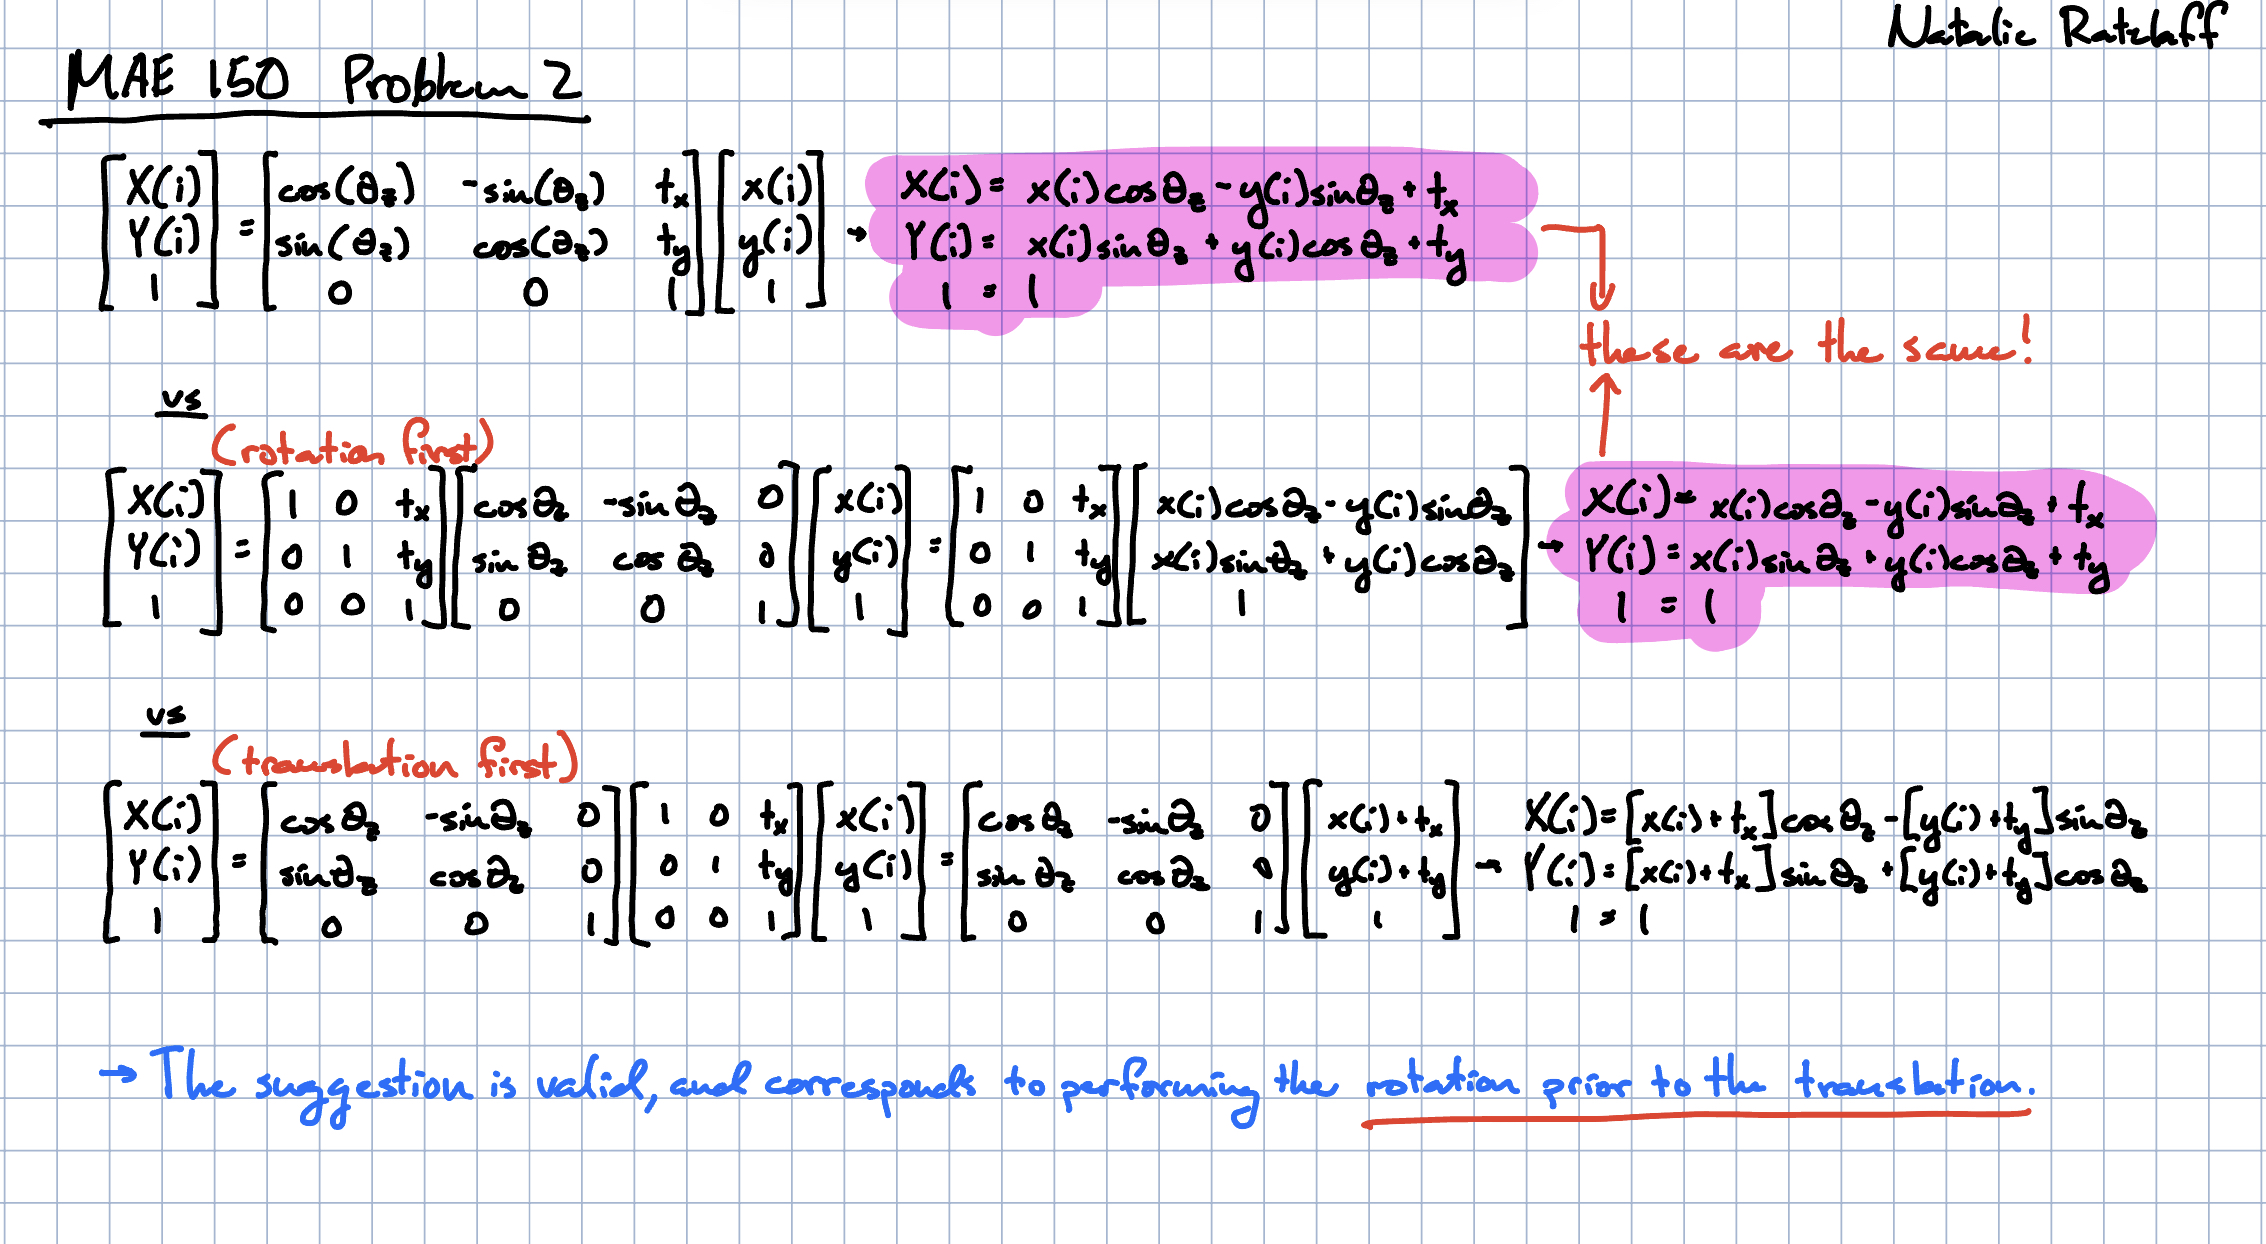 Natalie Ratzlaff
MAE 150 Problem 2
[X(i) Y(i) 1] = [cos(θz) -sin(θz) tx; sin(θz) cos(θz) ty; 0 0 1] [x(i) y(i) 1] → X(i) = x(i)cosθz - y(i)sinθz + tx
Y(i) = x(i)sinθz + y(i)cosθz + ty
1 = 1
these are the same!
vs
(rotation first)
[X(i) Y(i) 1] = [1 0 tx; 0 1 ty; 0 0 1] [cosθz -sinθz 0; sinθz cosθz 0; 0 0 1] [x(i) y(i) 1] = [1 0 tx; 0 1 ty; 0 0 1] [x(i)cosθz - y(i)sinθz; x(i)sinθz + y(i)cosθz; 1] → X(i) = x(i)cosθz - y(i)sinθz + tx
Y(i) = x(i)sinθz + y(i)cosθz + ty
1 = 1
vs
(translation first)
[X(i) Y(i) 1] = [cosθz -sinθz 0; sinθz cosθz 0; 0 0 1] [1 0 tx; 0 1 ty; 0 0 1] [x(i) y(i) 1] = [cosθz -sinθz 0; sinθz cosθz 0; 0 0 1] [x(i) + tx; y(i) + ty; 1] → X(i) = [x(i) + tx]cosθz - [y(i) + ty]sinθz
Y(i) = [x(i) + tx]sinθz + [y(i) + ty]cosθz
1 = 1
→ The suggestion is valid, and corresponds to performing the rotation prior to the translation.